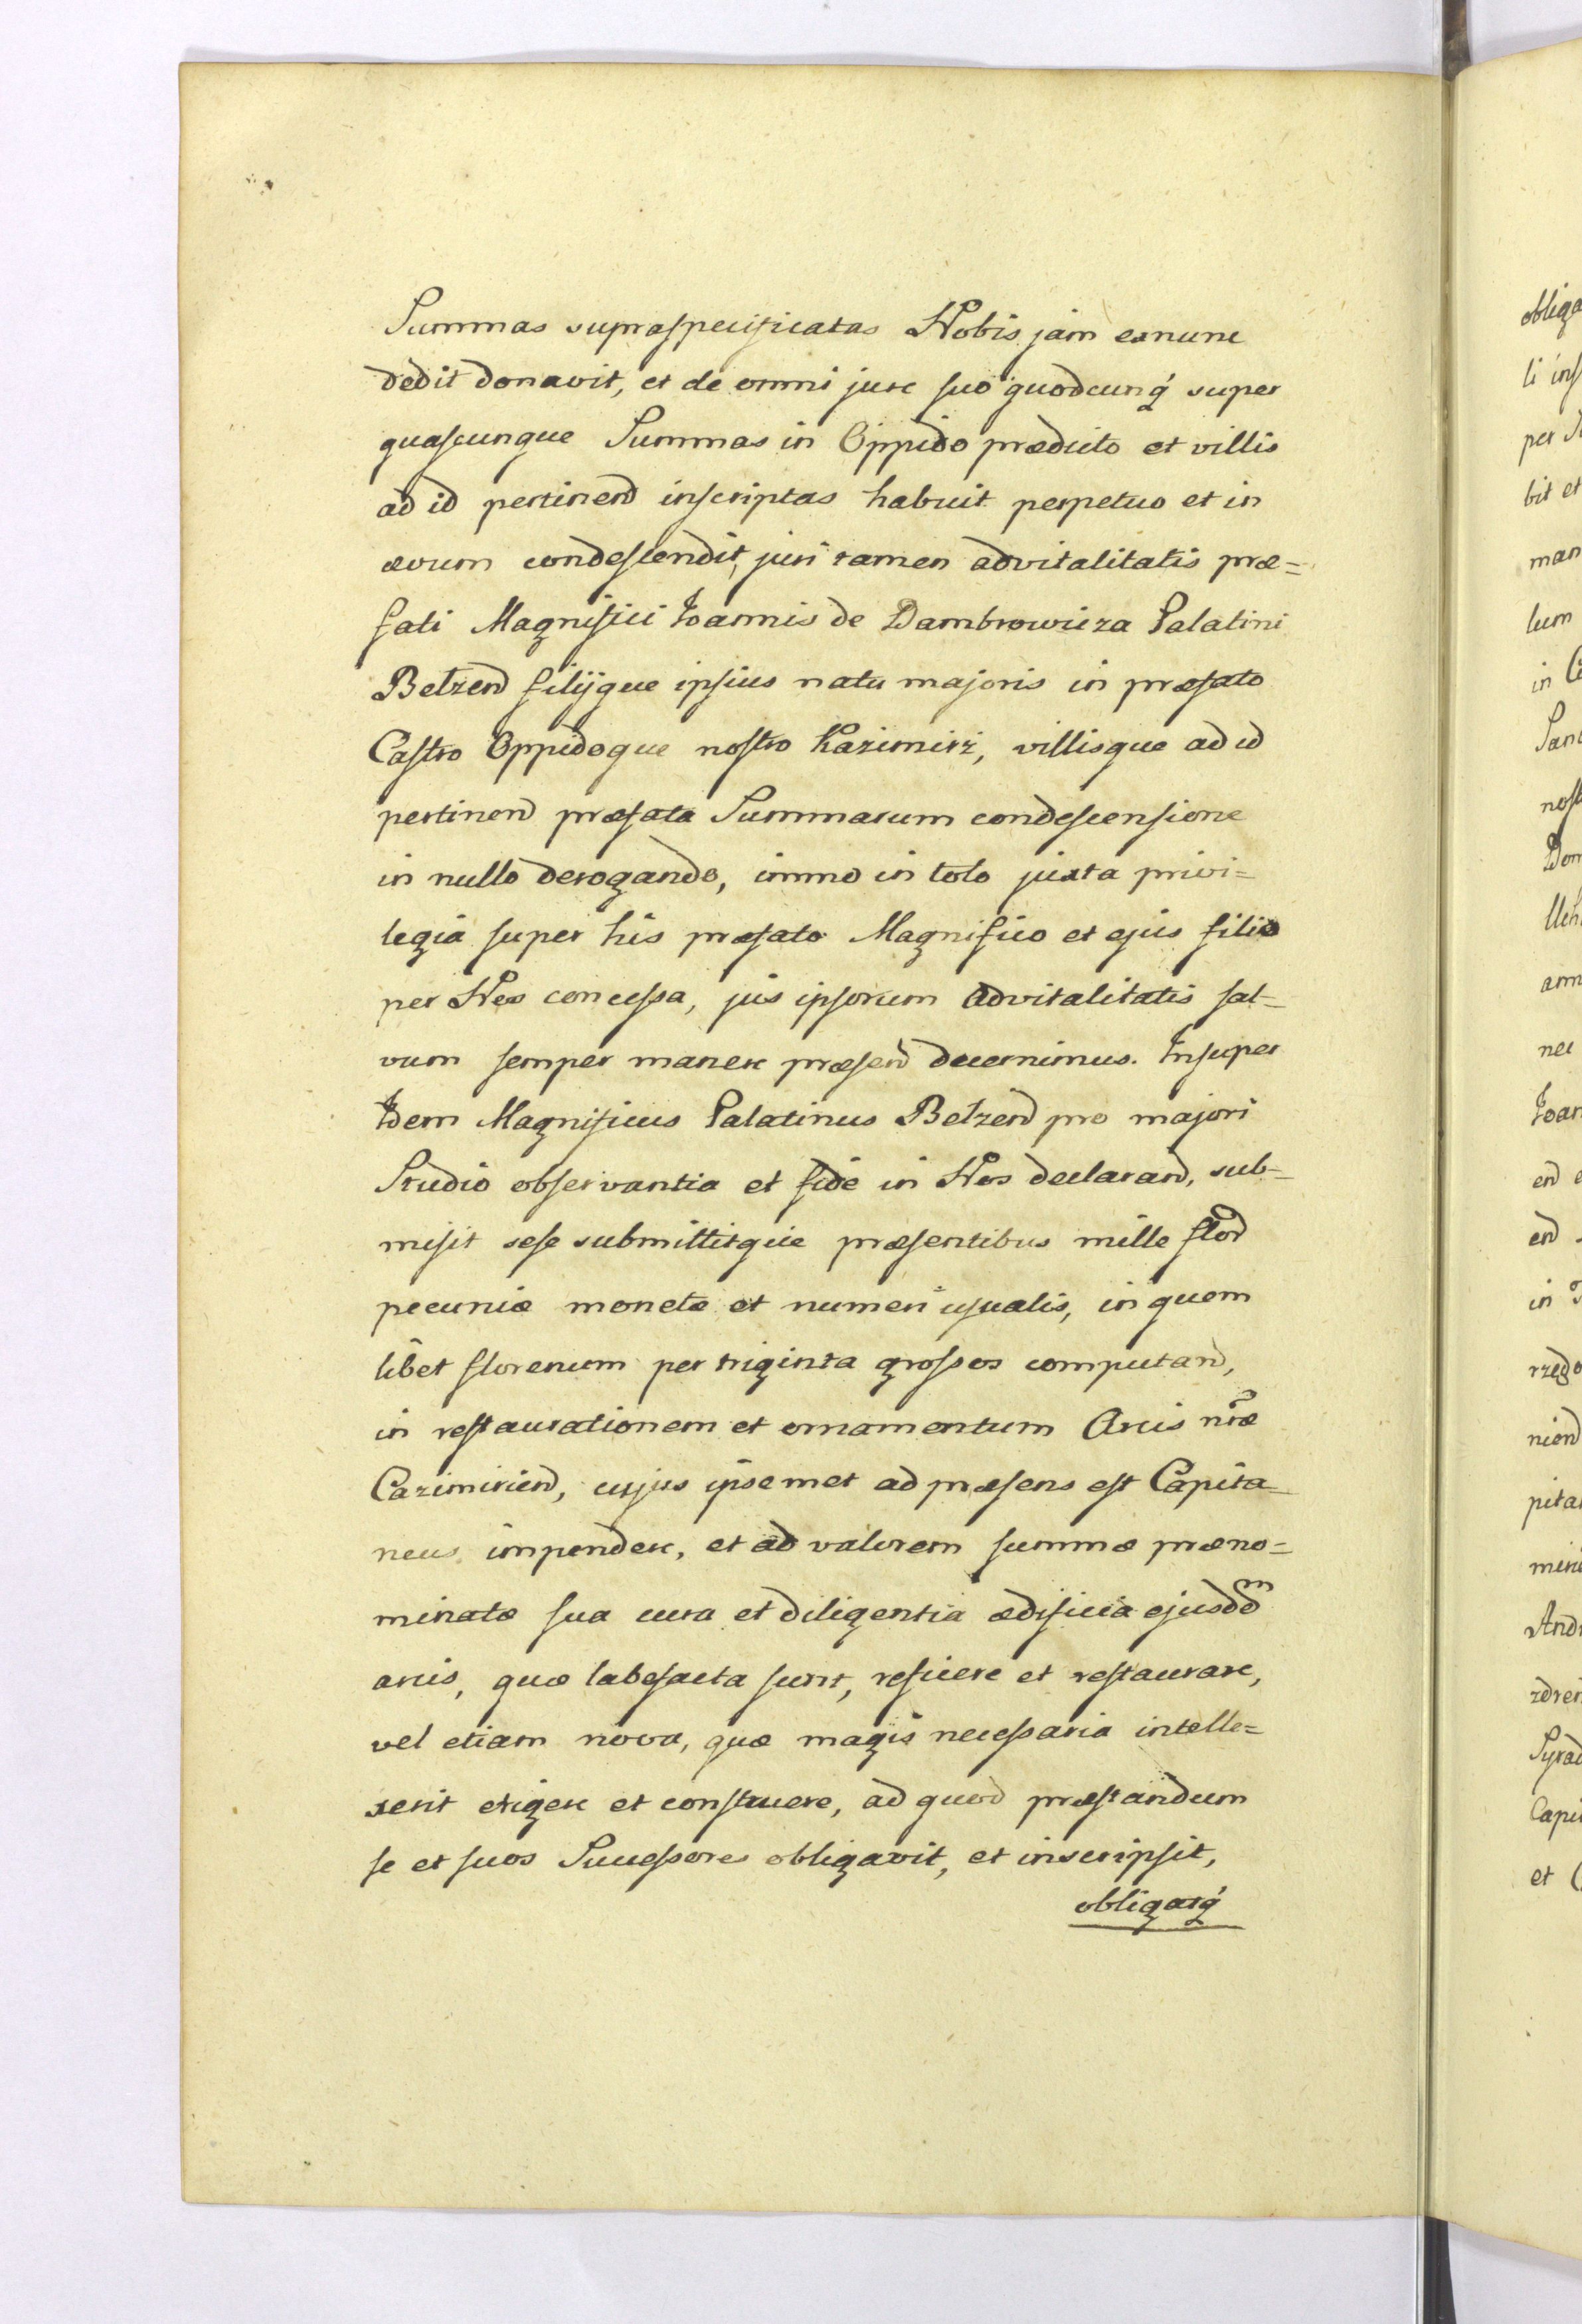 Summas supraspecificatas Nobis jam exnunc
dedit donavit, et de omni jure suo quodcunq́ super
quascunque Summas in Oppido prædicto et villis
ad id pertinend inscriptas habuit perpetuo et in
ævum condescendit, juri tamen advitalitatis præ=
fati Magnifici Joannis de Dambrowicza Palatini
Belzend filijque ipsius natu majoris in præfato
Castro Oppidoque nostro Kazimirz, villisque ad id
pertinend præfata Summarum condescensione
in nullo derogando, immo in toto juxta privi=
legia super his præfato Magnifico et ejus filio
per Nos concessa, jus ipsorum advitalitatis sal-
vum semper manere præsend decernimus. Insuper
Idem Magnificus Palatinus Belzend pro majori
Studio observantia et fide in Nos declarand, sub-
misit sese submittitque præsentibus mille flod
pecuniæ monetæ et numeri usualis, in quem
libet florenum per triginta grossos computand,
in restaurationem et ornamentum Arcis nr̃æ
Cazimiriend, cujus ipsemet ad præsens est Capita-
neus impendere, et ad valorem summæ præno=
minatæ sua cura et diligentia ædificia ejusdd̃m
arcis, quæ labefacta sunt, reficere et restaurare,
vel etiam nova, quæ magis necessaria intelle=
xerit erigere et construere, ad quod præstandum
se et suos Successores obligavit, et inscripsit,
obligatq́
obliga
li ins
per S
bit et
man
lum
in C
San
nost
Dom
llen
ann
nec
Joan
end e
end
in
rzędo
niend
pita
mini
And
zdren
Syrad
Capi
et C